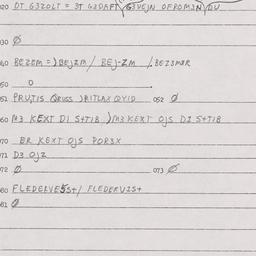 020 DT G3ZOLT = 3T G3DAFT/G3VEJN OFROM3N/DU
030 Ø
040 BEZEM=)BEJZM/ BEJ-ZM /BEZ3M3R
050 0
051 PRUTIS QRUSS )RITLAX QVID 052 Ø
060 M3 KEXT DI S+TIB )M3 KEXT OJS DI S+TIB
070 BR KEXT OJS POR3X
071 D3 OJZ
072 Ø 073 Ø
080 FLEDERVE5S+/ FLEDERVIS+
081 Ø